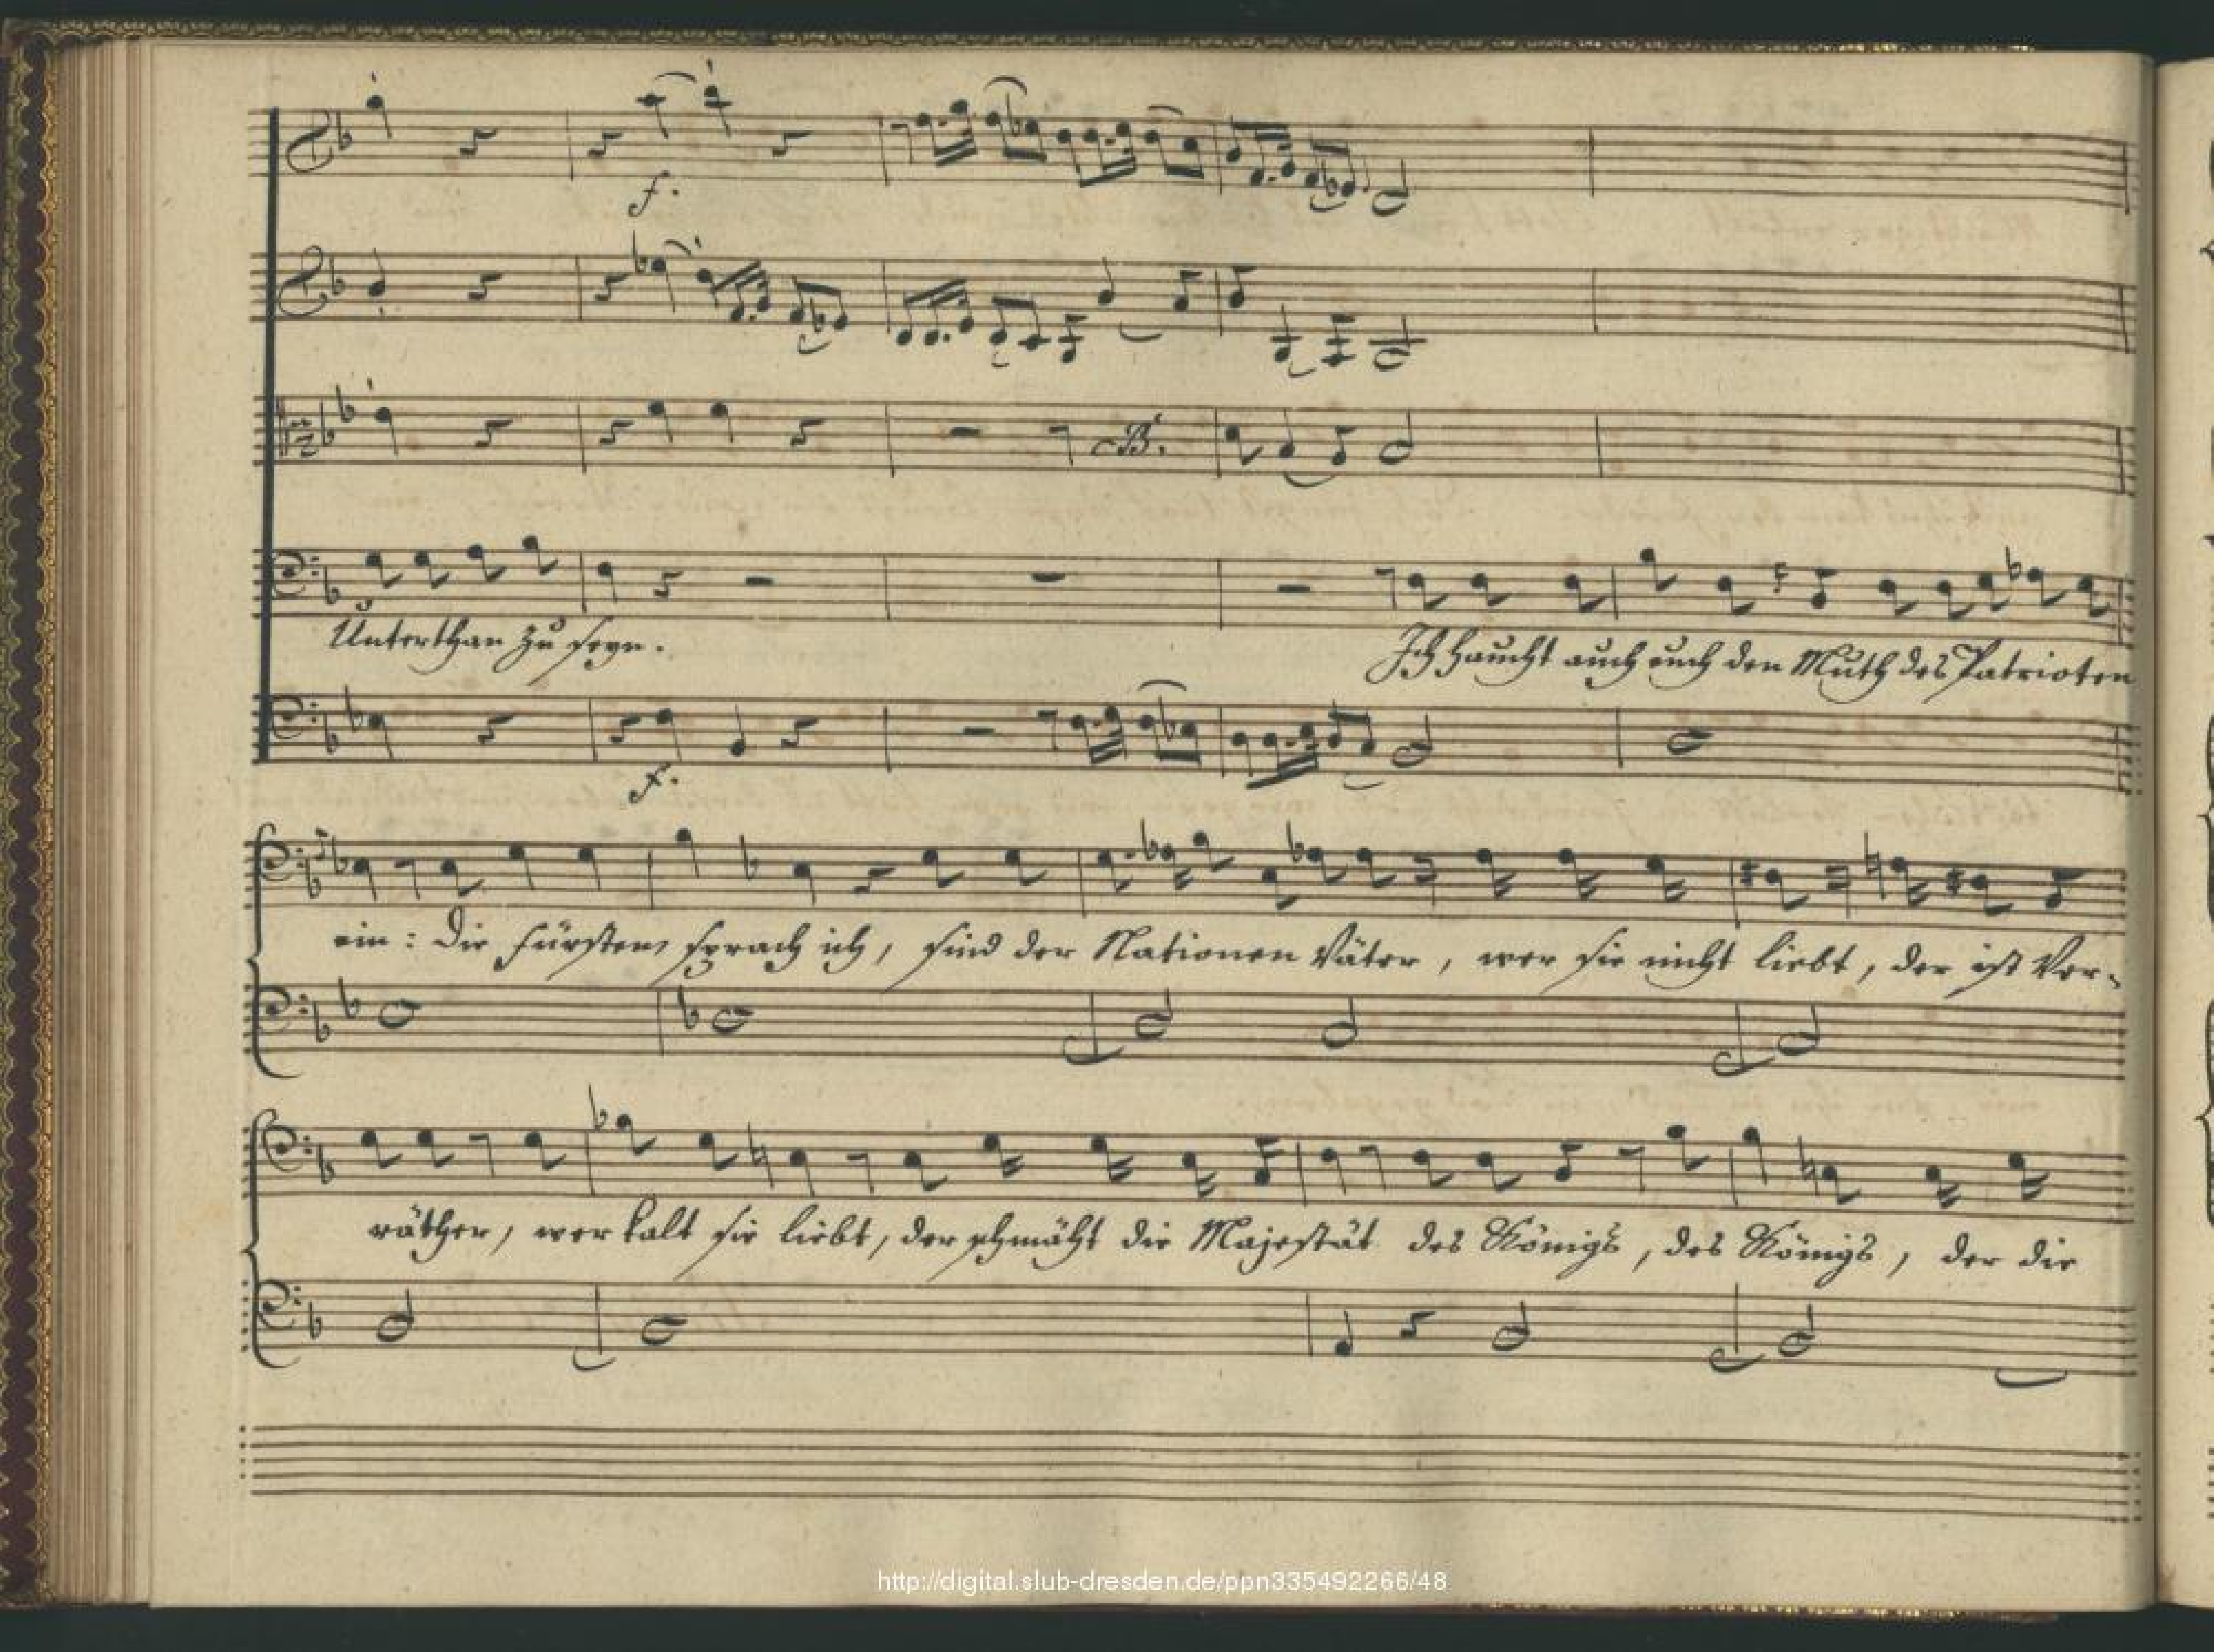 f.
Unterthan zu seyn.
Ich haucht auch euch den Muth des Patrioten
f.
ein: die Fürsten, sprach ich, sind der Nationen Väter, wer sie nicht liebt, der ist Ver-
räther, wer kalt sie liebt, der schmäht die Majestät des Königs, des Königs, der die
http://digital.slub-dresden.de/ppn335492266/48